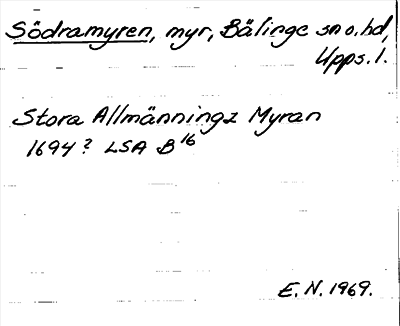 Södramyren, myr, Bälinge sn o. hd,
Upps. l.
Stora Allmännings Myran
1694? LSA B16
E. N. 1969.